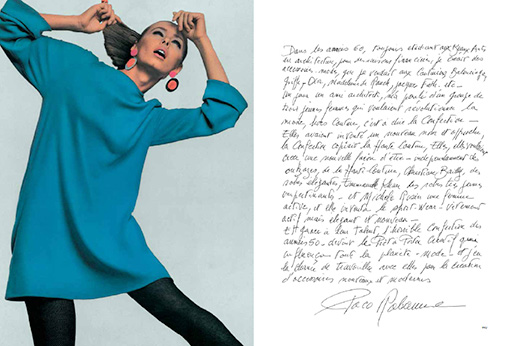 Dans les années 60, toujours étudiant aux Beaux Arts
en architecture, pour des raisons financières, je faisais des
accessoires modes, que je vendais aux Couturiers Balenciaga,
Griffe, Dior, Madeleine de Rauch, Jacques Fath. etc —
Un jour un ami architecte, m'a parlé d'un groupe de
trois jeunes femmes qui voulaient révolutionner la
mode, hors Couture, c'est à dire la Confection —
Elles avaient inventé un nouveau
la Confection copiait la Haute Couture, Elles, elles voulaient
créer une nouvelle façon d'être — indépendamment des
outrages, de la Haute Couture, Christiane Bailly, des
robes élégantes, Emmanuelle Khanh des robes très jeunes
impertinentes — et Michèle Rosier une femme
active, et elle inventa le sport-wear — vêtement
actif mais élégant et nouveau —
Et grâce à leur talent, l'horrible Confection des
années 50 — devint le Prêt à Porter Créatif qui
influença tout la planète — mode — et j'eu
la chance de travailler avec elles pour la création
d'accessoires nouveaux et modernes
Paco Rabanne